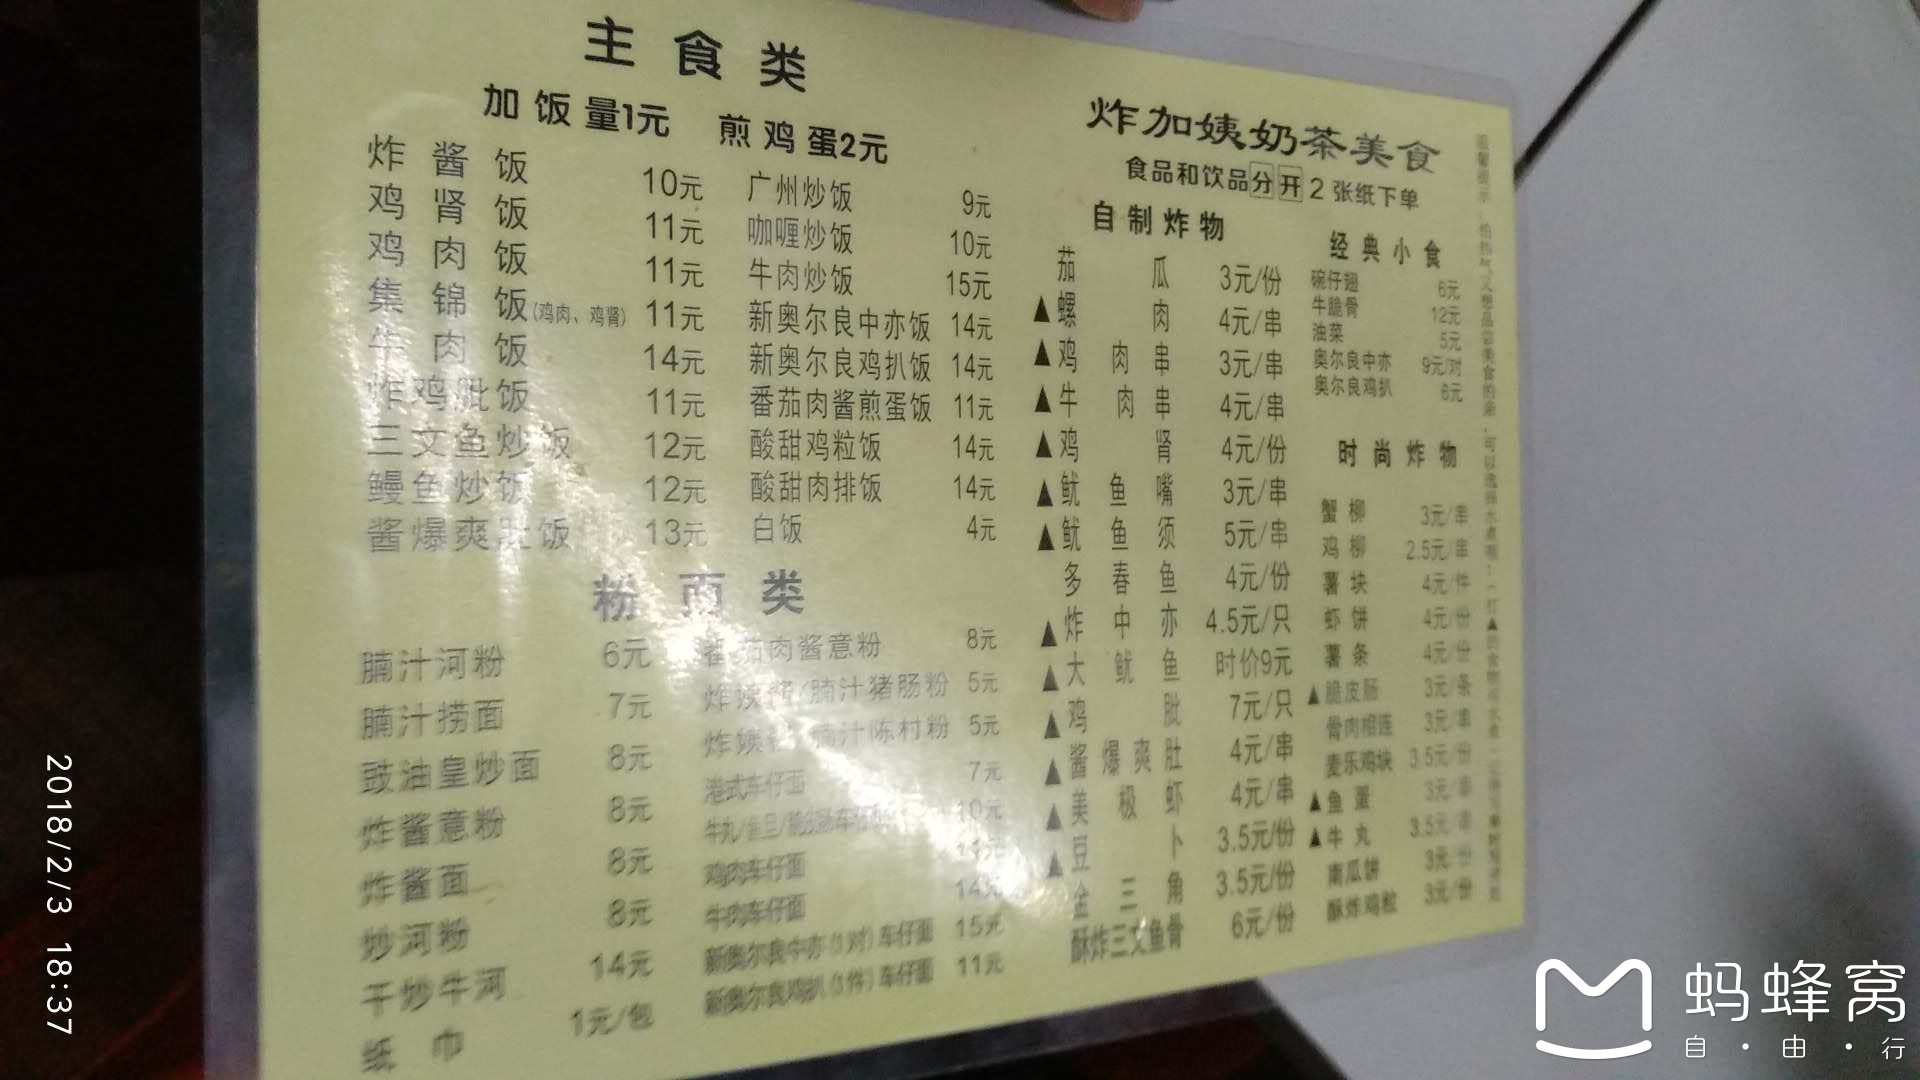 主食类
加饭量1元 煎鸡蛋2元
炸酱饭 10元
鸡肾饭 11元
鸡肉饭 11元
集锦饭(鸡肉、鸡肾) 11元
牛肉饭 14元
炸鸡肶饭 11元
三文鱼炒饭 12元
鳗鱼炒饭 12元
酱爆爽肚饭 13元
广州炒饭 9元
咖喱炒饭 10元
牛肉炒饭 15元
新奥尔良中亦饭 14元
新奥尔良鸡扒饭 14元
番茄肉酱煎蛋饭 11元
酸甜鸡粒饭 14元
酸甜肉排饭 14元
白饭 4元
粉面类
腩汁河粉 6元
腩汁捞面 7元
豉油皇炒面 8元
炸酱意粉 8元
炸酱面 8元
炒河粉 8元
干炒牛河 14元
纸巾 1元/包
番茄肉酱意粉 8元
炸姨酱/腩汁猪肠粉 5元
炸姨酱/腩汁陈村粉 5元
港式车仔面 7元
牛丸/鱼旦/脆皮肠车仔面 10元
鸡肉车仔面 11元
牛肉车仔面 14元
新奥尔良中亦(1对)车仔面 15元
新奥尔良鸡扒(1件)车仔面 11元
炸加姨奶茶美食
食品和饮品分开2张纸下单
自制炸物
茄瓜 3元/份
▲螺肉 4元/串
▲鸡肉串 3元/串
▲牛肉串 4元/串
▲鸡肾 4元/份
▲鱿鱼嘴 3元/串
▲鱿鱼须 5元/串
多春鱼 4元/份
▲炸中亦 4.5元/只
▲大鱿鱼 时价9元
▲鸡肶 7元/只
▲酱爆爽肚 4元/串
▲美极虾 4元/串
▲豆卜 3.5元/份
金三角 3.5元/份
酥炸三文鱼骨 6元/份
经典小食
碗仔翅 6元
牛脆骨 12元
油菜 5元
奥尔良中亦 9元/对
奥尔良鸡扒 6元
时尚炸物
蟹柳 3元/串
鸡柳 2.5元/串
薯块 4元/件
虾饼 4元/份
薯条 4元/份
▲脆皮肠 3元/条
骨肉相连 3元/串
麦乐鸡块 3.5元/份
▲鱼蛋 3元/串
▲牛丸 3.5元/串
南瓜饼 3元/份
酥炸鸡粒 3元/份
2018/2/3 18:37
蚂蜂窝
自·由·行